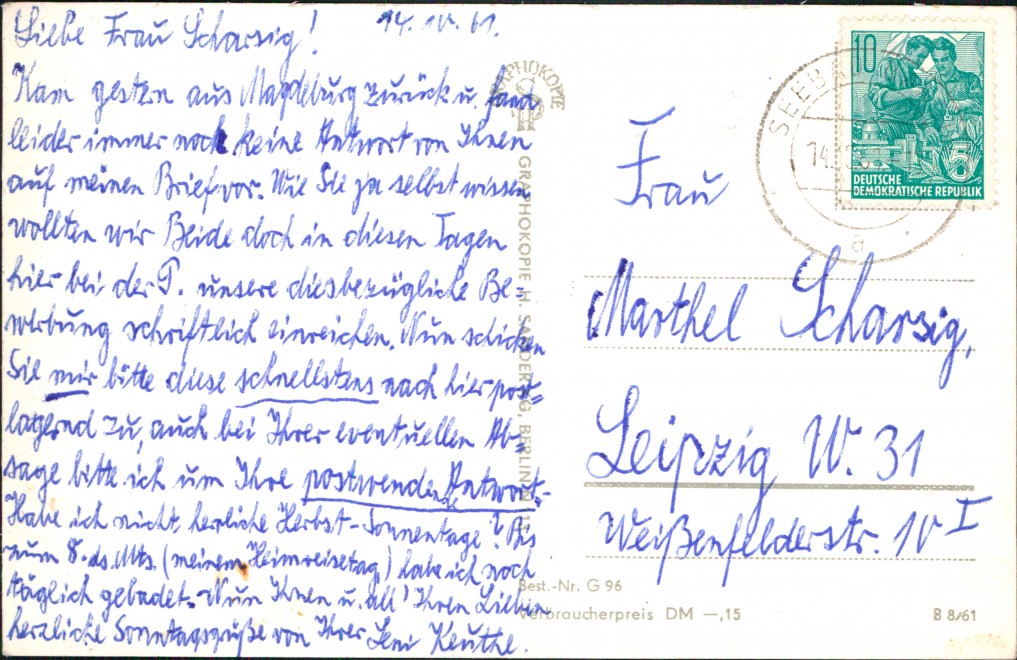 Liebe Frau Scharsig! 14.10.61.
Kam gestern aus Magdeburg zurück u. fand
leider immer noch keine Antwort von Ihnen
auf meinen Brief vor. Wie Sie ja selbst wissen
wollten wir Beide doch in diesen Tagen
hier bei der P. unsere diesbezügliche Be=
werbung schriftlich einreichen. Nun schicken
Sie mir bitte diese schnellstens nach hier post=
lagernd zu, auch bei Ihrer eventuellen Ab=
sage bitte ich um Ihre postwendende Antwort.
Habe ich nicht herrliche Herbst-Sonnentage? Bis
zum 8. ds. Mts. (meinem Heimreisetag) habe ich noch
täglich gebadet. Nun Ihnen u. all' Ihren Lieben
herzliche Sonntagsgrüße von Ihrer Leni Keuthe.
GRAPHOKOPIE
GRAPHOKOPIE H. SANDER KG, BERLIN
Frau
Marthel Scharsig,
Leipzig W. 31
Weißenfelderstr. 10 I
10
5
DEUTSCHE
DEMOKRATISCHE REPUBLIK
SEEB
14
a
Best.-Nr. G 96
Verbraucherpreis DM —,15
B 8/61